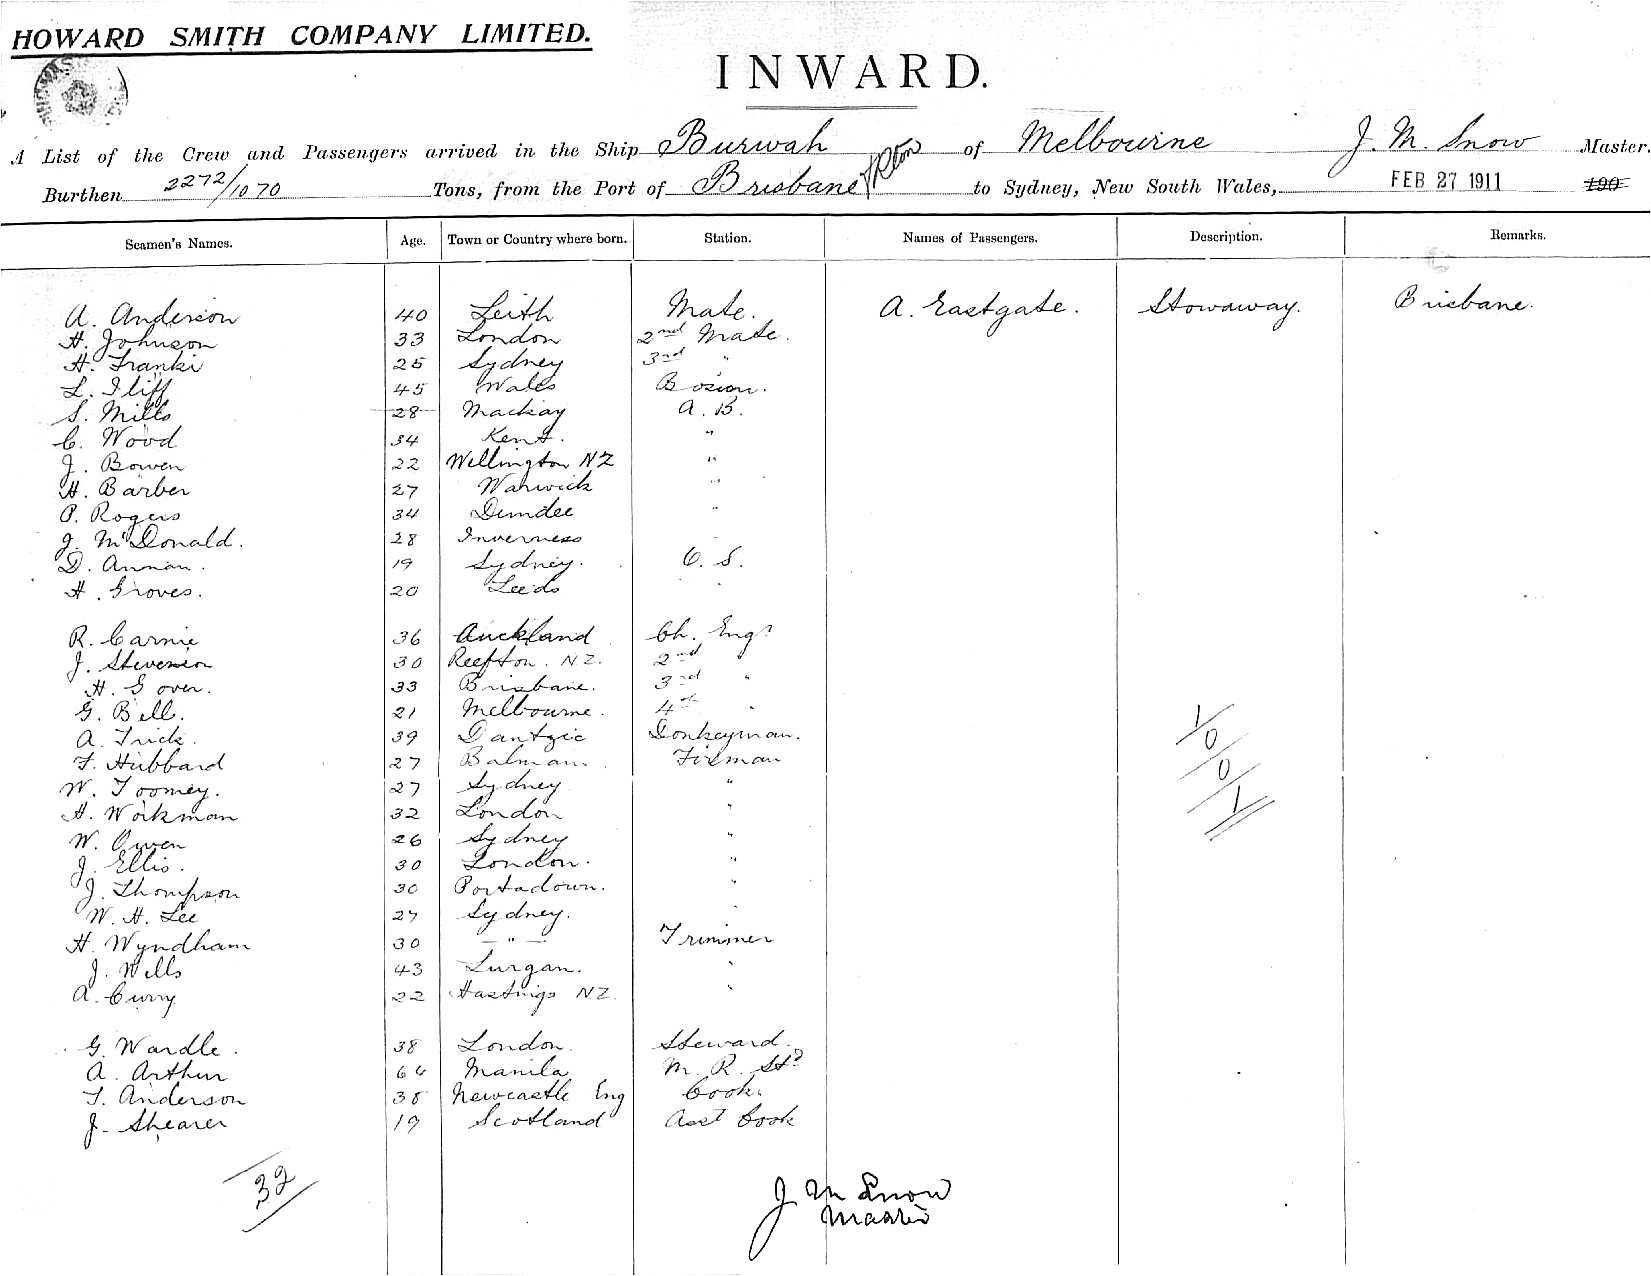 HOWARD SMITH COMPANY LIMITED.
INWARD.
A List of the Crew and Passengers arrived in the Ship Burwah of Melbourne J. M. Snow Master.
Burthen 2272/1070 Tons, from the Port of Brisbane to Sydney, New South Wales, FEB 27 1911 190
Seamen's Names. Age. Town or Country where born. Station. Names of Passengers. Description. Remarks.
A. Anderson 40 Leith Mate. A. Eastgate. Stowaway. Brisbane.
H. Johnson 33 London 2nd Mate.
H. Franki 25 Sydney 3rd "
L. Iliff 45 Wales Bosun.
S. Mills 28 Mackay A. B.
C. Wood 34 Kent. "
J. Bowen 22 Wellington NZ "
H. Barber 27 Warwick "
P. Rogers 34 Dundee "
J. McDonald. 28 Inverness
D. Annan. 19 Sydney. O. S.
H. Groves. 20 Leeds "
R. Carnie 36 Auckland Ch. Engr
J. Stevenson 30 Reefton. NZ. 2nd
H. Gover. 33 Brisbane. 3rd "
G. Bell. 21 Melbourne. 4th "
A. Frick. 39 Dantzic Donkeyman.
F. Hubbard 27 Balmain. Fireman
W. Toomey. 27 Sydney "
H. Workman 32 London "
W. Owen 26 Sydney "
J. Ellis. 30 London. "
J. Thompson 30 Portadown. "
W. H. Lee 27 Sydney. "
H. Wyndham 30 — " — Trimmer
J. Wells 43 Lurgan. "
A. Curry 22 Hastings NZ. "
G. Wardle. 38 London. Steward.
A. Arthur 64 Manila M. R. Std
T. Anderson 38 Newcastle Eng Cook.
J. Shearer 19 Scotland Asst Cook
1/0/0/1
32
J M Snow
Master